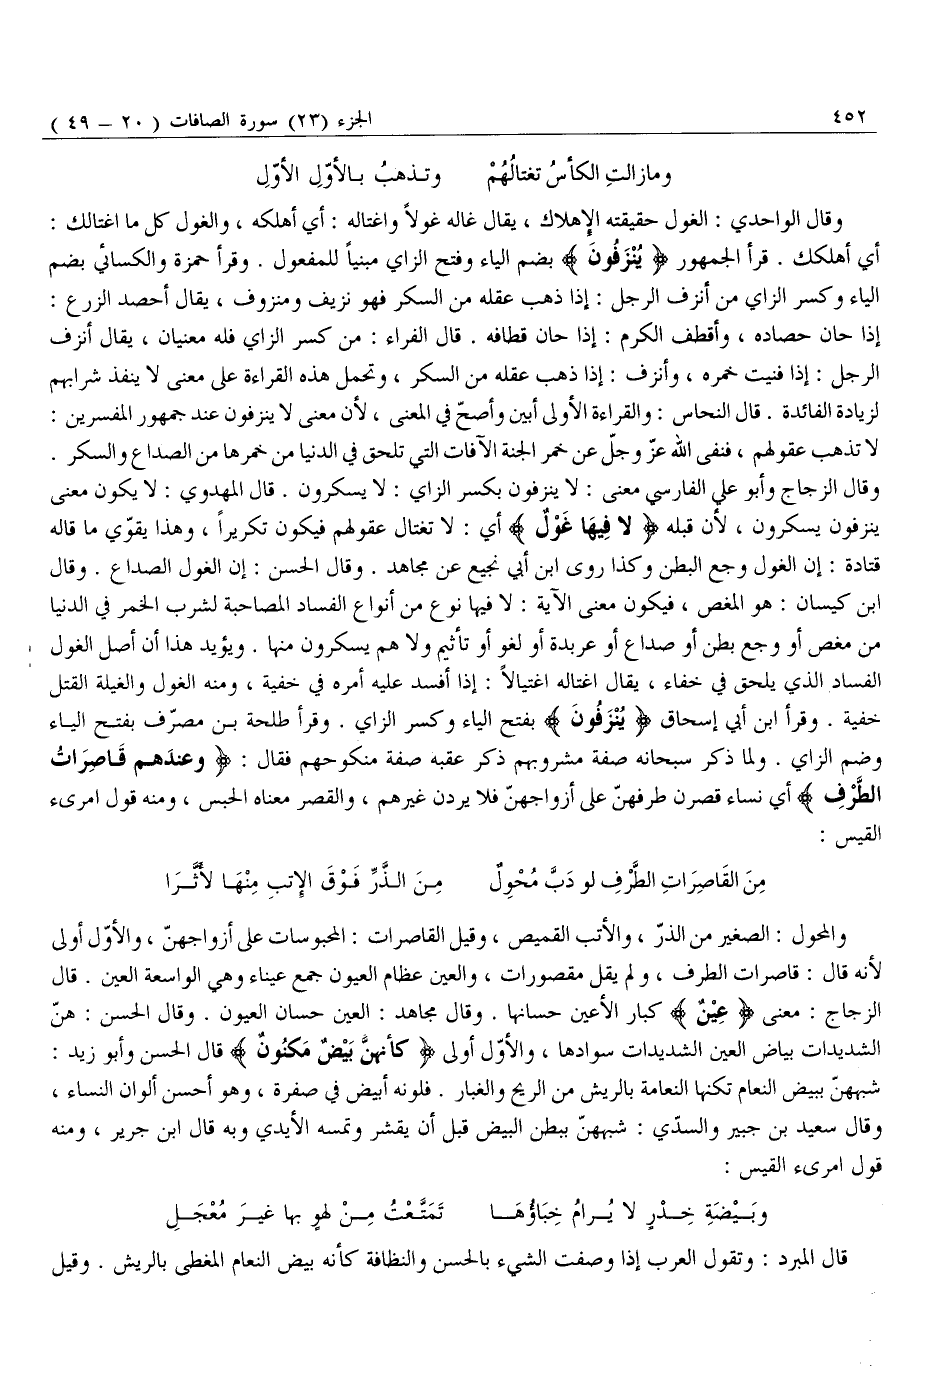 ٤٥٢ الجزء (٢٣) سورة الصافات ( ٢٠ – ٤٩ )
ومازالتِ الكأسُ تغتالُهُمْ وتـذهبُ بـالأوّلِ الأوّلِ
وقال الواحدي : الغول حقيقته الإهلاك ، يقال غاله غولاً واغتاله : أي أهلكه ، والغول كل ما اغتالك :
أي أهلكك . قرأ الجمهور ﴿ يُنْزَفُونَ ﴾ بضم الياء وفتح الزاي مبنياً للمفعول . وقرأ حمزة والكسائي بضم
الياء وكسر الزاي من أنزف الرجل : إذا ذهب عقله من السكر فهو نزيف ومنزوف ، يقال أحصد الزرع :
إذا حان حصاده ، وأقطف الكرم : إذا حان قطافه . قال الفراء : من كسر الزاي فله معنيان ، يقال أنزف
الرجل : إذا فنيت خمره ، وأنزف : إذا ذهب عقله من السكر ، وتحمل هذه القراءة على معنى لا ينفذ شرابهم
لزيادة الفائدة . قال النحاس : والقراءة الأولى أبين وأصحّ في المعنى ، لأن معنى لا ينزفون عند جمهور المفسرين :
لا تذهب عقولهم ، فنفى الله عزّ وجلّ عن خمر الجنة الآفات التي تلحق في الدنيا من خمرها من الصداع والسكر .
وقال الزجاج وأبو علي الفارسي معنى : لا ينزفون بكسر الزاي : لا يسكرون . قال المهدوي : لا يكون معنى
ينزفون يسكرون ، لأن قبله ﴿ لا فِيهَا غَوْلٌ ﴾ أي : لا تغتال عقولهم فيكون تكريراً ، وهذا يقوّي ما قاله
قتادة : إن الغول وجع البطن وكذا روى ابن أبي نجيع عن مجاهد . وقال الحسن : إن الغول الصداع . وقال
ابن كيسان : هو المغص ، فيكون معنى الآية : لا فيها نوع من أنواع الفساد المصاحبة لشرب الخمر في الدنيا
من مغص أو وجع بطن أو صداع أو عربدة أو لغو أو تأثيم ولا هم يسكرون منها . ويؤيد هذا أن أصل الغول
الفساد الذي يلحق في خفاء ، يقال اغتاله اغتيالاً : إذا أفسد عليه أمره في خفية ، ومنه الغول والغيلة القتل
خفية . وقرأ ابن أبي إسحاق ﴿ يُنْزَفُونَ ﴾ بفتح الياء وكسر الزاي . وقرأ طلحة بـن مصرّف بفتـح اليـاء
وضم الزاي . ولما ذكر سبحانه صفة مشروبهم ذكر عقبه صفة منكوحهم فقال : ﴿ وعندَهـم قَـاصِرَاتُ
الطَّرْفِ ﴾ أي نساء قصرن طرفهنّ على أزواجهنّ فلا يردن غيرهم ، والقصر معناه الحبس ، ومنه قول امرىء
القيس :
مِنَ القَاصِرَاتِ الطَّرْفِ لو دَبَّ مُحْوِلٌ مِـنَ الـذَّرِّ فَـوْقَ الإتبِ مِنْهَـا لأَثَّـرَا
والمحول : الصغير من الذرّ ، والأتب القميص ، وقيل القاصرات : المحبوسات على أزواجهنّ ، والأوّل أولى
لأنه قال : قاصرات الطرف ، ولم يقل مقصورات ، والعين عظام العيون جمع عيناء وهي الواسعة العين . قال
الزجاج : معنى ﴿ عِيْنٌ ﴾ كبار الأعين حسانها . وقال مجاهد : العين حسان العيون . وقال الحسن : هنّ
الشديدات بياض العين الشديدات سوادها ، والأوّل أولى ﴿ كأنهنَّ بَيْضٌ مَكنُونٌ ﴾ قال الحسن وأبو زيد :
شبههنّ ببيض النعام تكنها النعامة بالريش من الريح والغبار . فلونه أبيض في صفرة ، وهو أحسن ألوان النساء ،
وقال سعيد بن جبير والسدّي : شبههنّ ببطن البيض قبل أن يقشر وتمسه الأيدي وبه قال ابن جرير ، ومنه
قول امرىء القيس :
وبَـيْضَةِ خِـدْرٍ لا يُـرامُ خِبَاؤُهَـا تَمَتَّعْتُ مِـنْ لهوٍ بها غيـرَ مُعْجَـلِ
قال المبرد : وتقول العرب إذا وصفت الشيء بالحسن والنظافة كأنه بيض النعام المغطى بالريش . وقيل